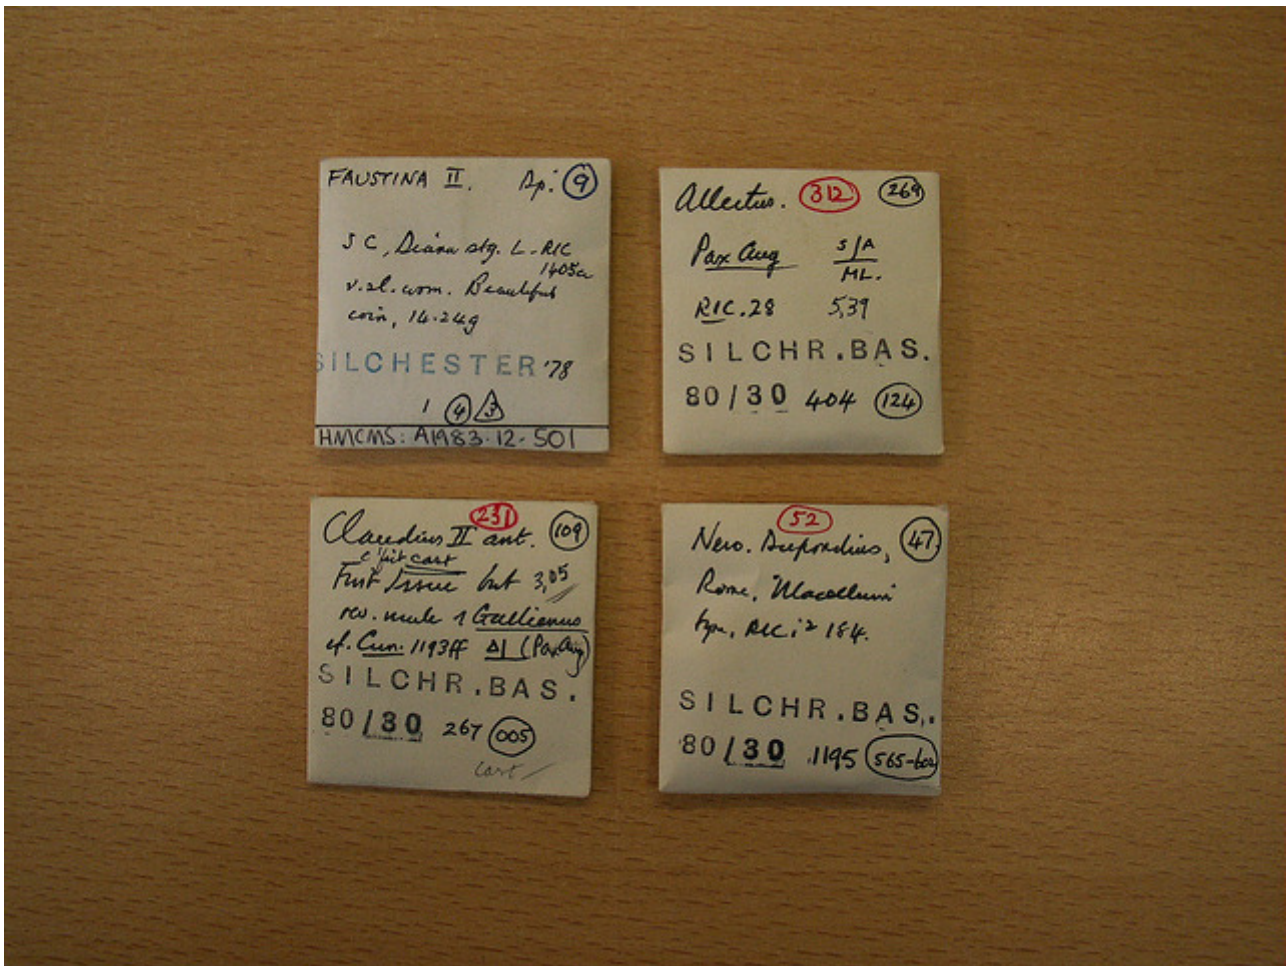 FAUSTINA II. Dp. 9
S C, Diana stg. L. RIC
1405a
v.sl.worn. Beautiful
coin, 14.24g
SILCHESTER '78
1 4 3
HMCMS: A1983.12.501
Allectus. 312 269
Pax Aug S/A
ML.
RIC.28 5,39
SILCHR.BAS.
80/30 404 124
231
Claudius II ant. 109
c'feit cast
First Issue but 3,05
rev. mule of Gallienus
cf. Cun. 1193ff Δ| (Pax Aug)
SILCHR.BAS.
80/30 267 005
cast
52
Nero. Dupondius, 47
Rome, Macellum
type, RIC i² 184.
SILCHR.BAS.
80/30 1195